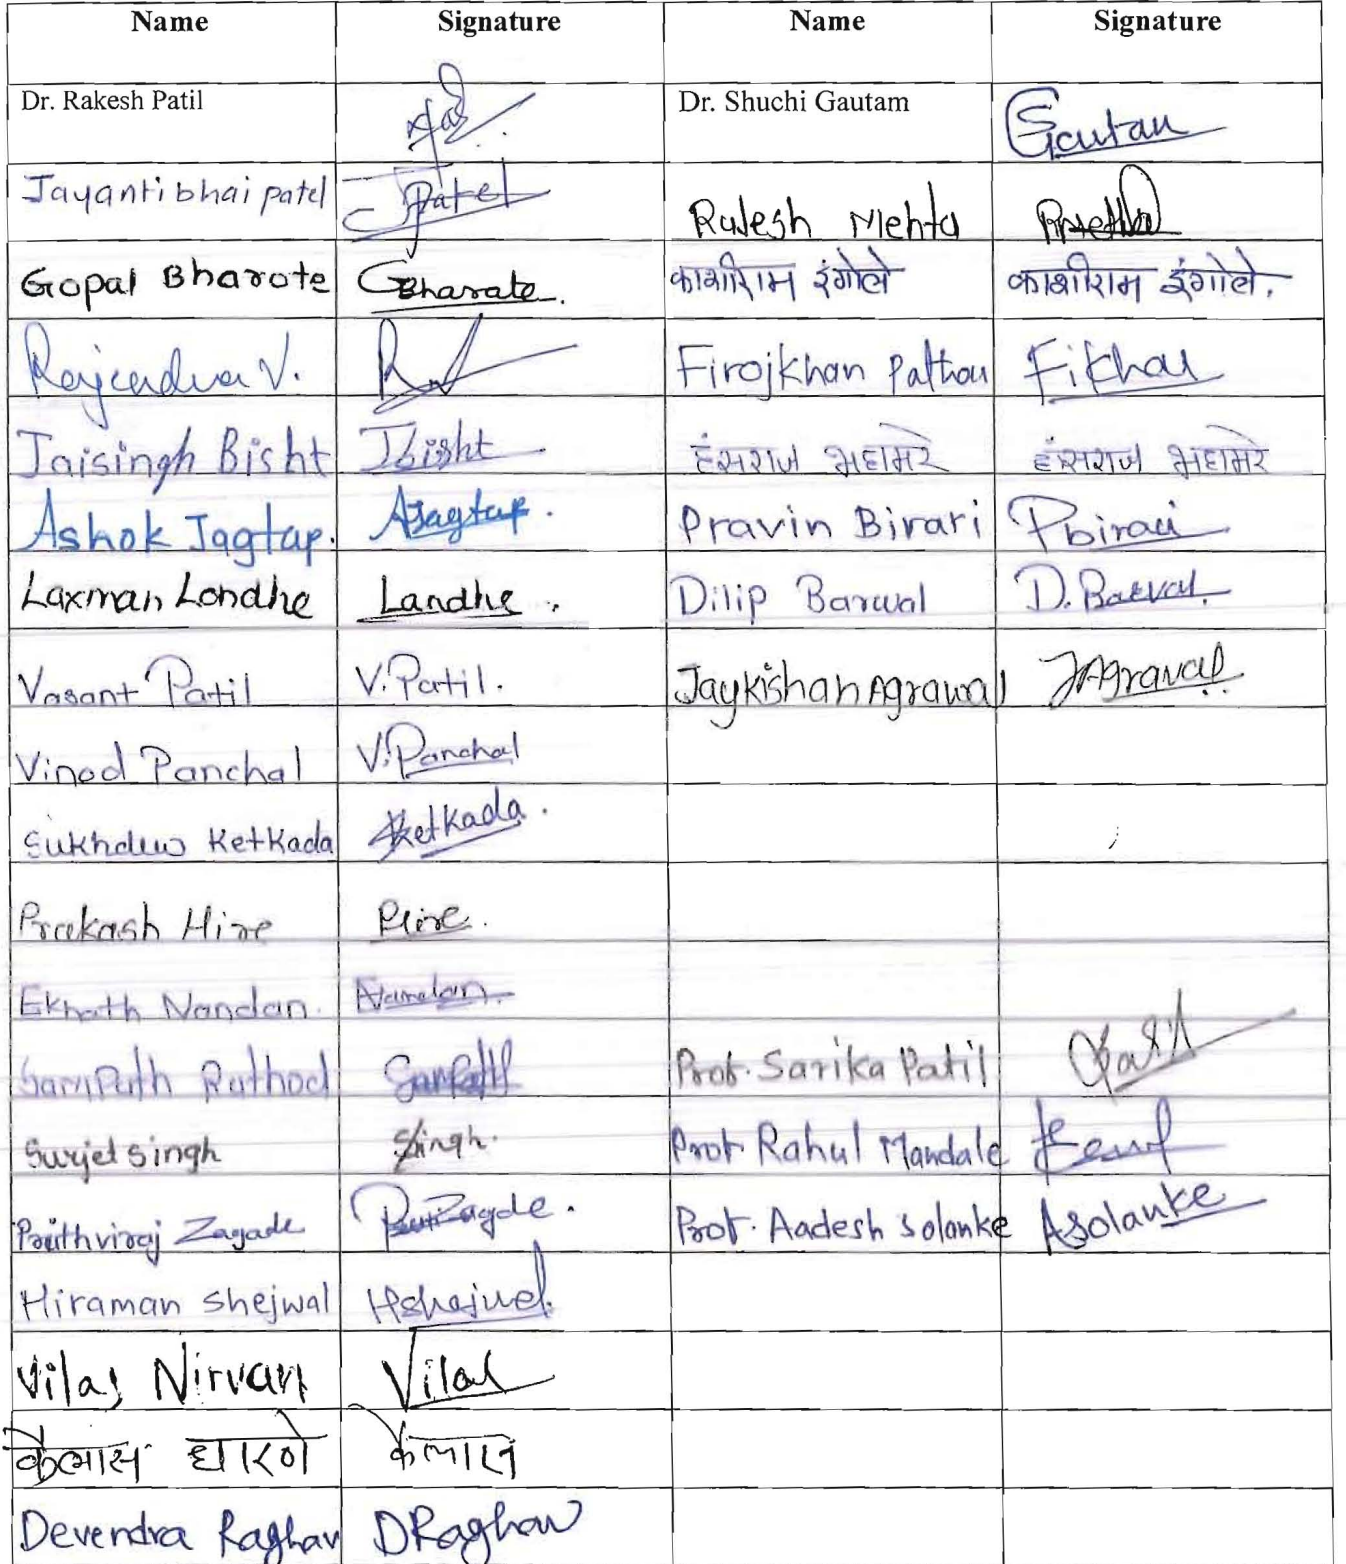 Name Signature Name Signature
Dr. Rakesh Patil Dr. Shuchi Gautam Gautam
Jayantibhai patel JPatel Rajesh Mehta RMehta
Gopal Bharote GBharate. काशीराम इंगोले काशीराम इंगोले.
Rajendra V. Firojkhan Pathan Fikhan
Jaisingh Bisht JBisht हंसराज भहामरे हंसराज भहामरे
Ashok Jagtap. AJagtap. Pravin Birari Pbirari
Laxman Londhe Landhe. Dilip Barwal D. Barval.
Vasant Patil V. Patil. Jaykishan Agrawal JAgraval
Vinod Panchal V. Panchal
Sukhdev Ketkada Ketkada.
Prakash Hire PHire.
Eknath Nandan. Nandan.
Sampath Rathod Prof. Sarika Patil Patil
Surjet singh Singh. Prof Rahul Mandale
Prithviraj Zagade Zagde. Prof. Aadesh Solanke ASolanke
Hiraman Shejwal HShejwal.
Vilas Nirvan Vilas
कैलास घारणे कैलास
Devendra Raghav DRaghav